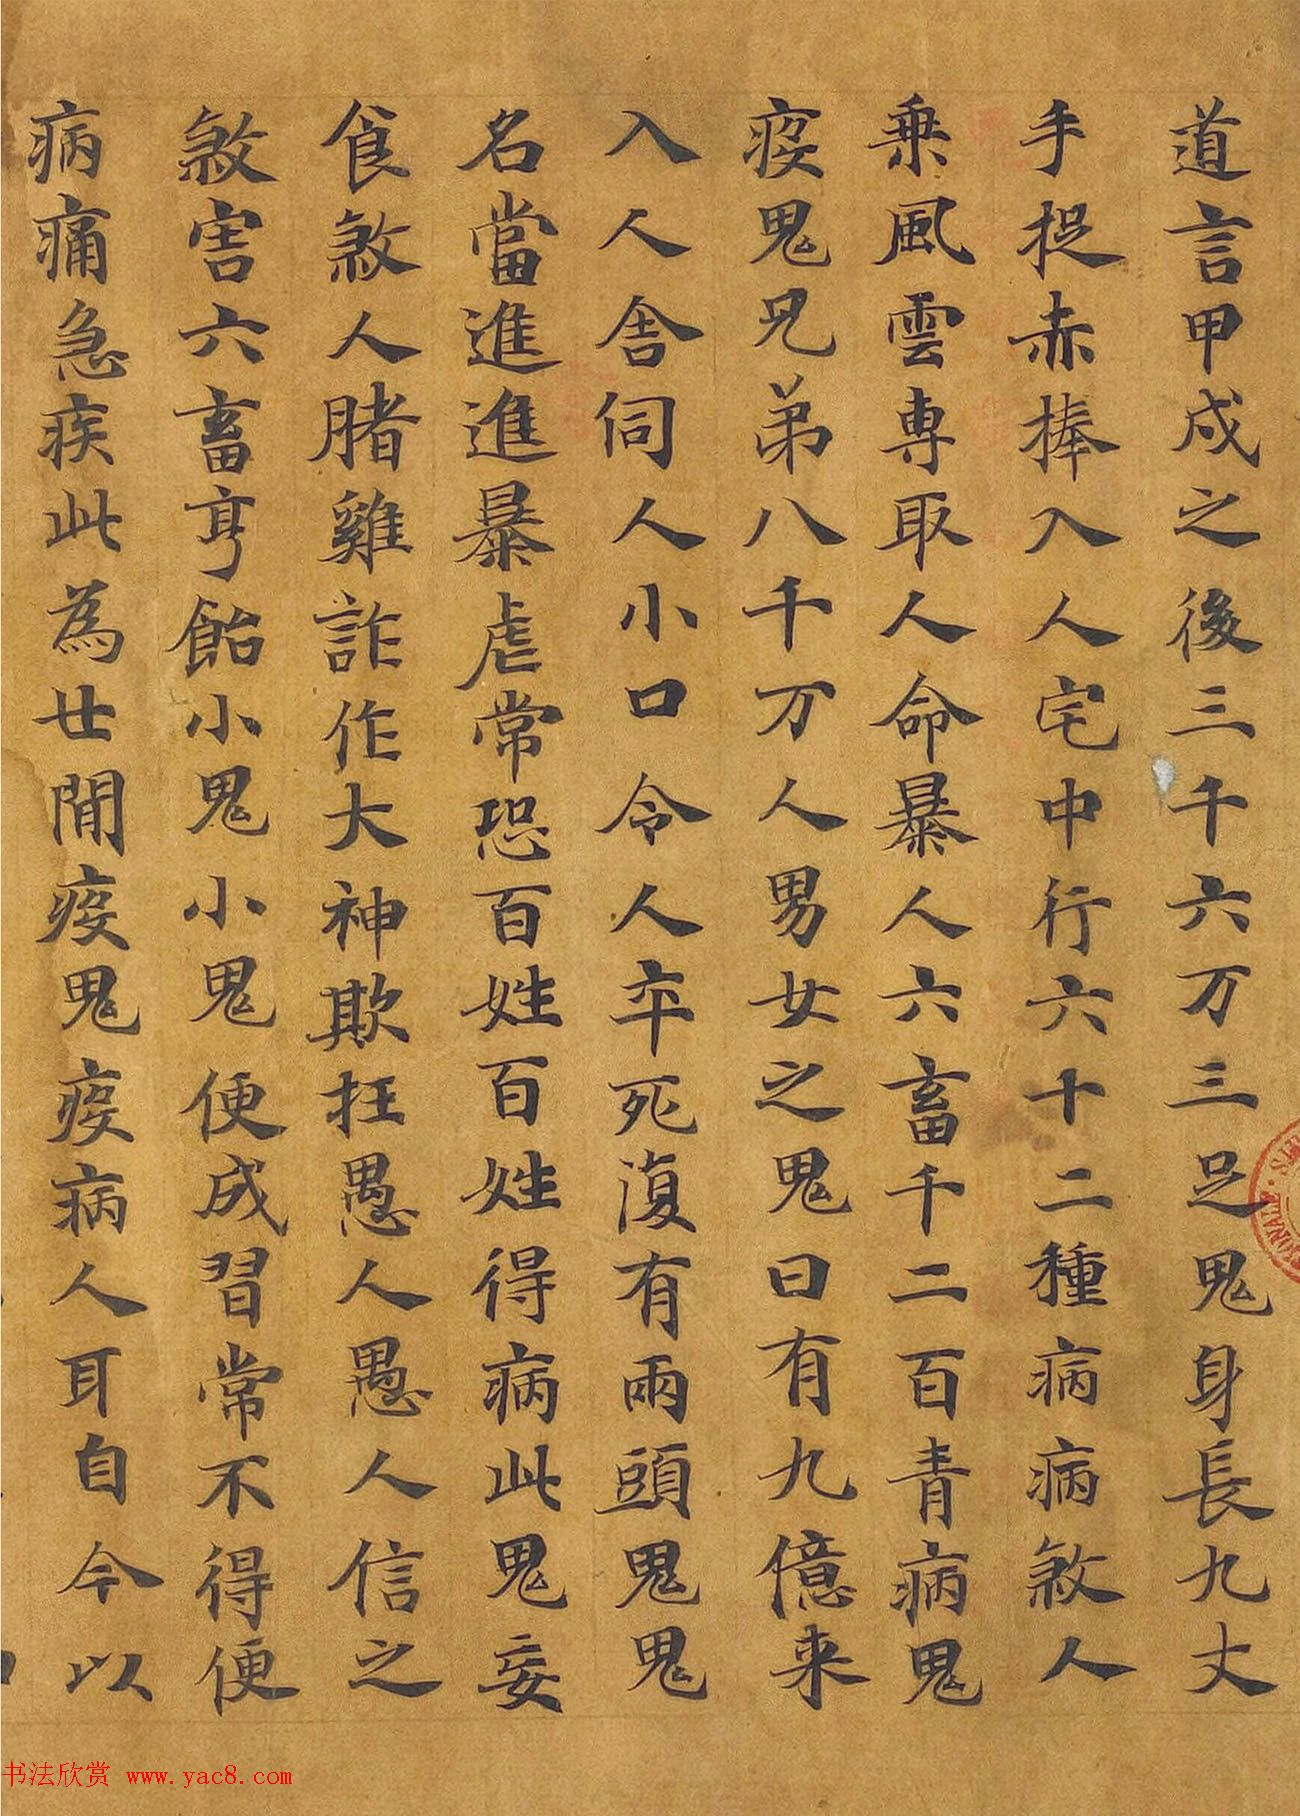 道言甲戌之後三千六万三足鬼身長九丈
手捉赤棒入人宅中行六十二種病病煞人
乗風雲専取人命暴人六畜千二百青病鬼
疫鬼兄弟八千万人男女之鬼曰有九億来
入人舎伺人小口令人卒死復有兩頭鬼鬼
名當進進暴虐常恐百姓百姓得病此鬼妄
食煞人賭雞詐作大神欺狂愚人愚人信之
煞害六畜亨飴小鬼小鬼便成習常不得便
病痛急疾此為世閒疫鬼疫病人耳自今以
书法欣赏 www.yac8.com